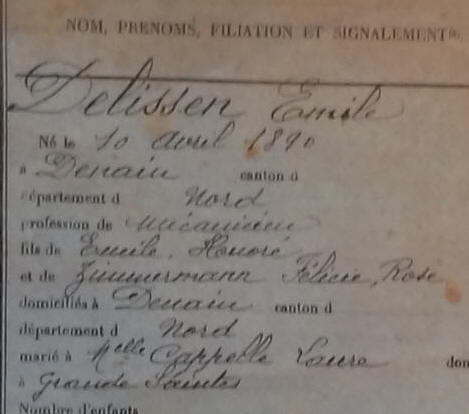 NOM, PRENOMS, FILIATION ET SIGNALEMENT
Delissen Emile
Né le 10 avril 1890
à Denain canton d
département d Nord
profession de Mécanicien
fils de Emile, Honoré
et de Zimmermann Félicie, Rose
domiciliés à Denain canton d
département d Nord
marié à Melle Cappelle Laure don
à Grande
Nombre d'enfants